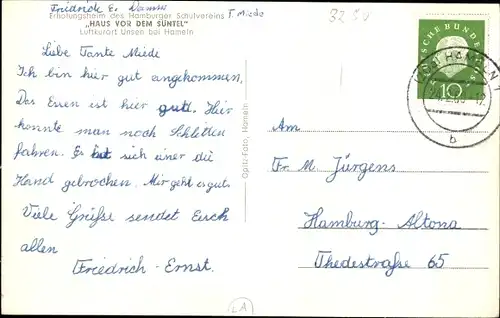 Friedrich E.
T. Miede
32 50
Erholungsheim des Hamburger Schulvereins
„HAUS VOR DEM SÜNTEL"
Luftkurort Unsen bei Hameln
Liebe Tante Miede
Ich bin hier gut angekommen,
Das Essen ist hier gut. Hier
konnte man noch Schlitten
fahren. Er hat sich einer die
Hand gebrochen. Mir geht es gut.
Viele Grüße sendet Euch
allen
Friedrich-Ernst.
Opitz-Foto, Hameln
DEUTSCHE BUNDES
10
HAMELN 1
b
Am
Fr. M. Jürgens
Hamburg-Altona
Thedestraße 65
LA